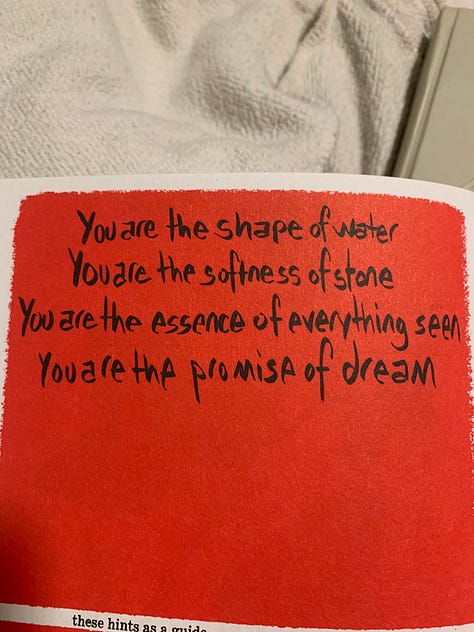 You are the shape of water
You are the softness of stone
You are the essence of everything seen
You are the promise of dream
these hints as a guide